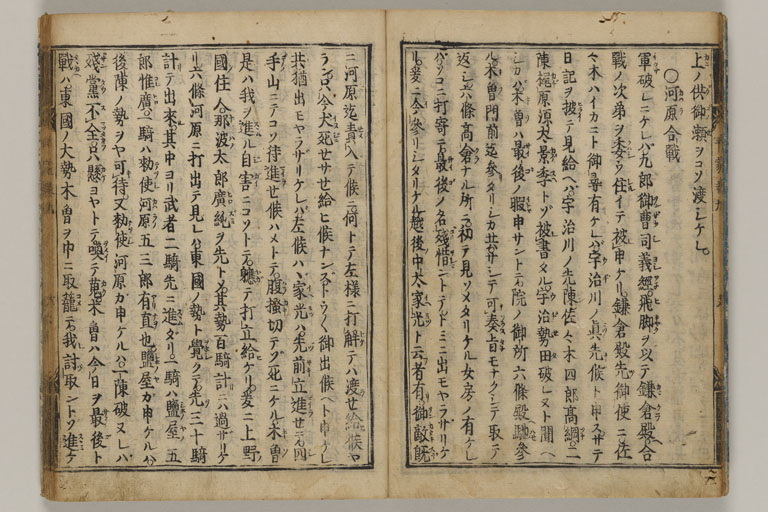 上ノ供御瀬ヲコソ渡シケレ。
○河原合戰
軍破レニケレバ九郎御曹司義經飛脚ヲ以テ鎌倉殿ヘ合
戰ノ次第ヲ委ウ住イテ被申ケリ鎌倉殿先御使ニ佐
々木ハイカニト御尋有ケレバ宇治川ノ眞先候ト申スサテ
日記ヲ披テ見給ヘバ宇治川ノ先陳佐々木四郎髙綱二
陳梶原源太景季トゾ被書タル宇治勢田破レヌト聞ヘ
シカバ木曽ハ最後ノ暇申サントテ院ノ御所六條殿馳参
ル木曽門前迄参タリシカ共サシテ可奏旨モナクシテ取テ
返シ六條髙倉ナル所ニ初テ見ソメタリケル女房ノ有ケレ
バソコニ打寄テ最後ノ名残惜ントテトミニ出モヤラザリケ
ル。爰ニ今参リシタリケル越後中太家光ト云者有御敵既
ニ河原迄責入テ候ニ何トテ左様ニ打解テハ渡セ給候ヤ
ラン只今犬死セサセ給ヒ候ナンズトウ〱御出候ヘト申ケレ
共猶出モヤラサリケレバ左候ハヽ家光ハ先前立進セテ四
手山ニテコソ待進セ候ハメトテ腹搔切テゾ死ニケル木曽
是ハ我ヲ進ル自害ニコソトテ軈テ打立給ケリ爰ニ上野
國住人那波太郎廣純ヲ先トシテ其勢百騎計ニハ過サリケ
リ六條河原ニ打出テ見レバ東國ノ勢ト覺クテ先三十騎
計テ出來其中ヨリ武者二騎先ニ進タリ一騎ハ鹽屋五
郎惟廣一騎ハ勅使河原五三郎有直也鹽屋カ申ケルハ
後陳ノ勢ヲヤ可待又勅使河原カ申ケルハ一陳破ヌレバ
殘黨不全只懸ヨヤトテ喚テ蒐木曽ハ今日ヲ最後ト
戰ハ東國ノ大勢木曽ヲ中ニ取籠テ我討取ントゾ進ケ